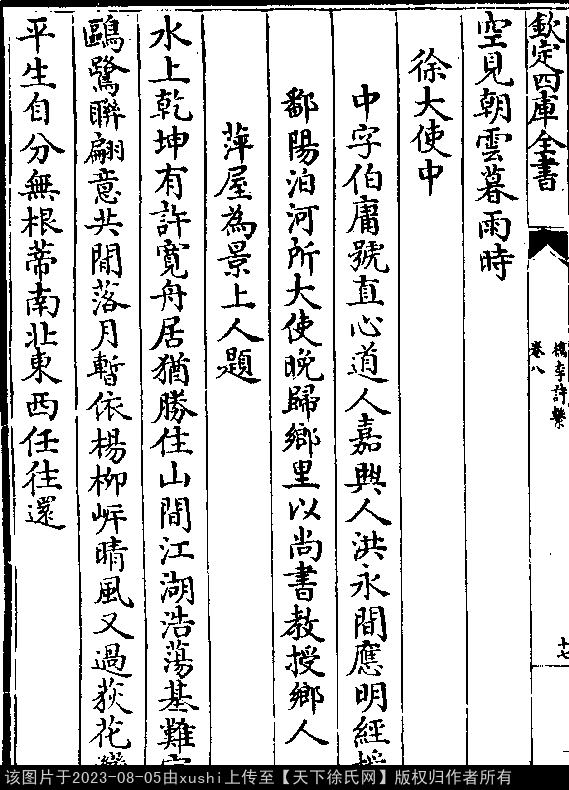 欽定四庫全書
檇李詩繫
卷八
十七
空見朝雲暮雨時
徐大使中
中字伯庸號直心道人嘉興人洪永間應明經
鄱陽泊河所大使晚歸鄉里以尚書教授鄉人
萍屋為景上人題
水上乾坤有許寛舟居猶勝住山間江湖浩蕩基難
鷗鷺聯翩意共閒落月暫依楊柳岍晴風又過荻花
平生自分無根蔕南北東西任往還
该图片于2023-08-05由xushi上传至【天下徐氏网】版权归作者所有